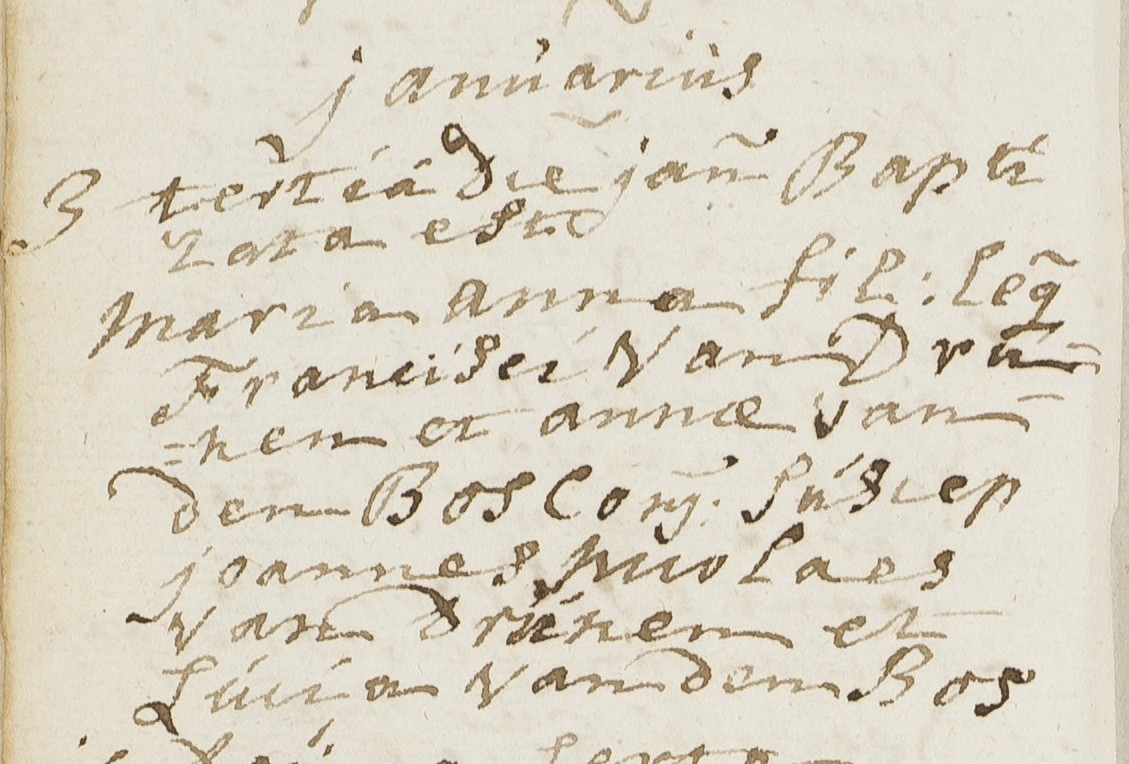 januarius
3 tertiá die jañ Bapti
zata est
maria Anna fil: leg̃
Francisci Van Dru
=nen et annæ van
den Bos Conj. Suscep
joannes Nicolaes
van Drunen et
Lucia van den Bos